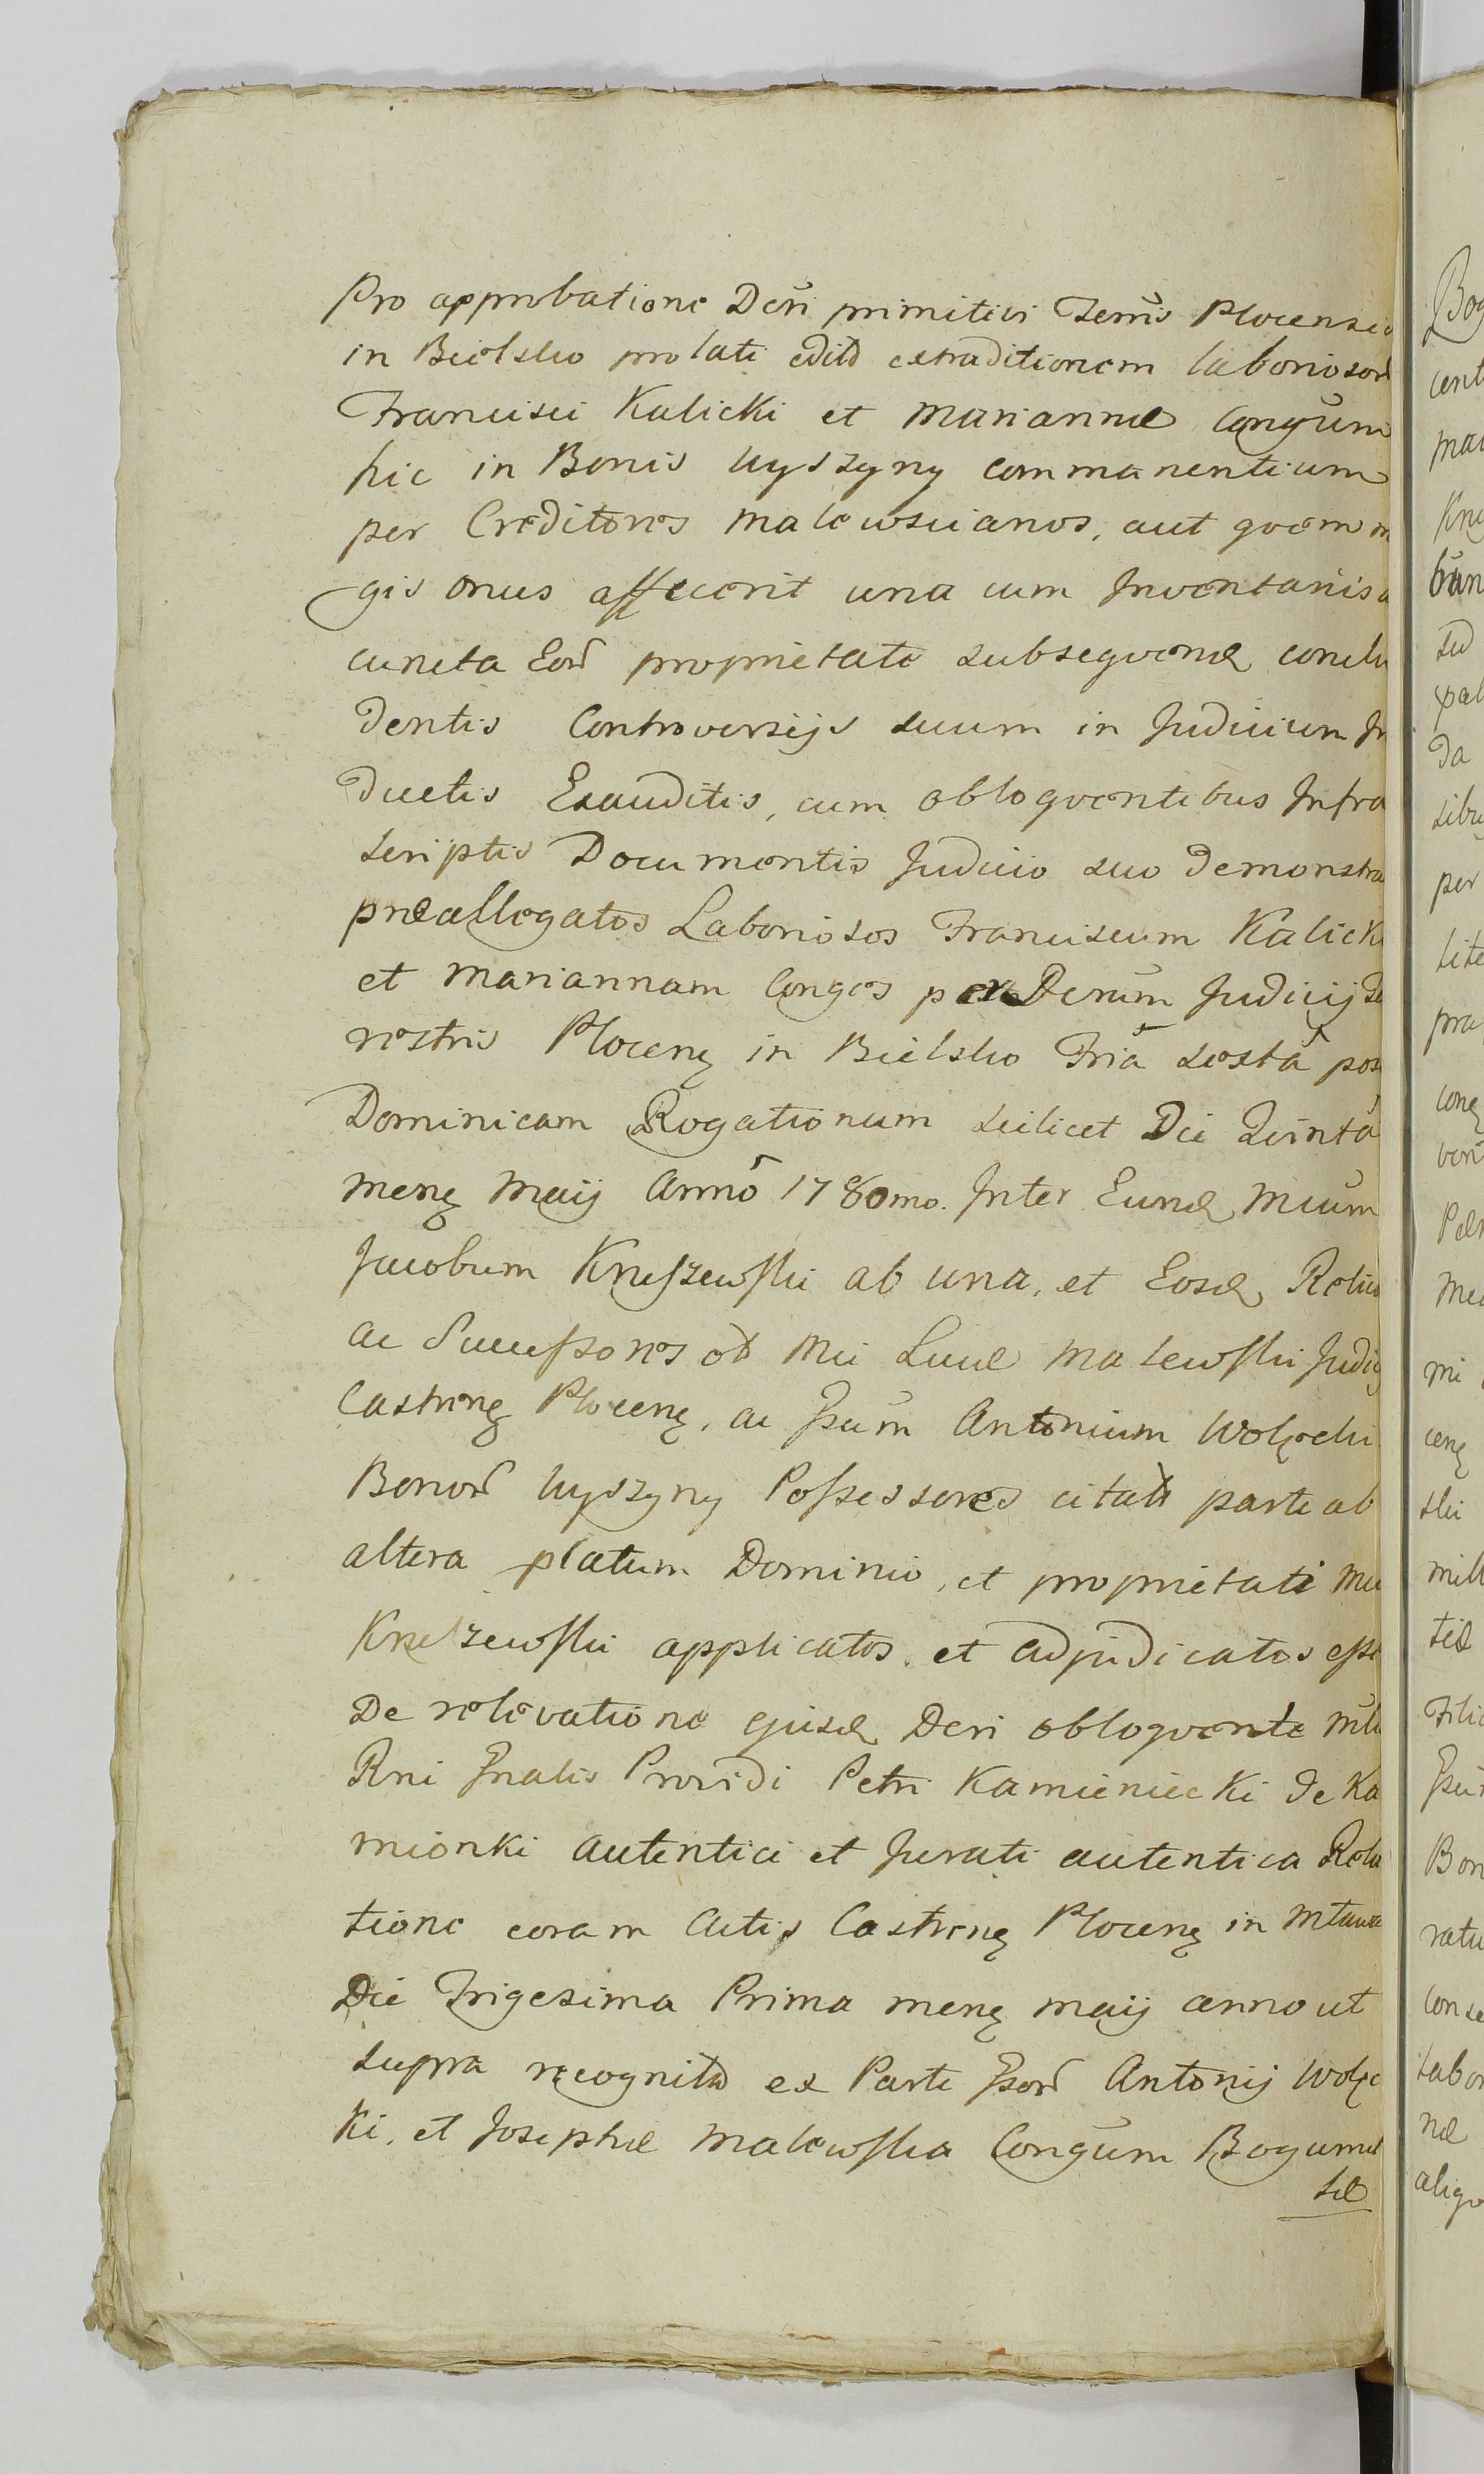 Pro approbatione Dcri primitivi Terris Plocensis
in Bielsko prolati edito extraditionem laboriosor
Francisci Kalicki et Mariannæ Congum
hic in Bonis Uyszyny commanentium
per Creditores Malewscianos, aut quem m
gis onus affecerit una cum Inventariis a
cuncta Eor proprietate subsequend conclu
dentis Controversijs suum in Judicium In
ductis Exauditis, cum obloquentibus Infra
scriptis Documentis Judicio suo demonstra
præallegatos Laboriosos Franciscum Kalicki
et Mariannam Conges per Dcrum Judicij Te
rrestris Plocens in Bielsko Fria sexta post
Dominicam Rogationum scilicet Die Quinta
mens Maij Anno 1780mo. Inter Eund Mcum
Jacobum Kneszewski ab una, et Eosd Relic
ac Successores ol Mci Lucæ Malewski Judic
Castrens Plocens, ac Gsum Antonium Wolski
Bonor Uyszyny Possessores citato parte ab
altera platum Dominio, et proprietati Mci
Kneszewski applicatos et adjudicatos esse
De relevatione ejusd Dcri obloquente
Rni Gnalis Providi Petri Kamieniecki de Ka
mionki autentici et Jurati autentica Rela
tione coram Actis Castrens Plocens in Mlawa
Die Trigesima Prima mens Maij anno ut
supra recognito ex Parte Gsor Antonij Wols
ki, et Josephæ Malewska Congum Bogumil
læ
Bog
cent
mar
Kne
bun
da
per
lite
pra
cone
Palr
mi
cens
ski
mill
tiæ
Filio
Bon
ratu
conse
labor
næ
aliqu